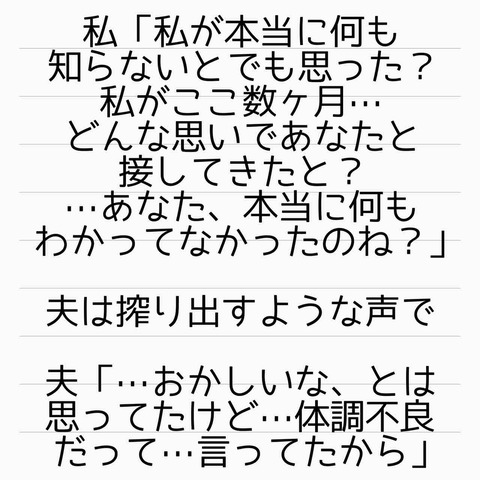 私「私が本当に何も
知らないとでも思った？
私がここ数ヶ月…
どんな思いであなたと
接してきたと？
…あなた、本当に何も
わかってなかったのね？」
夫は搾り出すような声で
夫「…おかしいな、とは
思ってたけど…体調不良
だって…言ってたから」